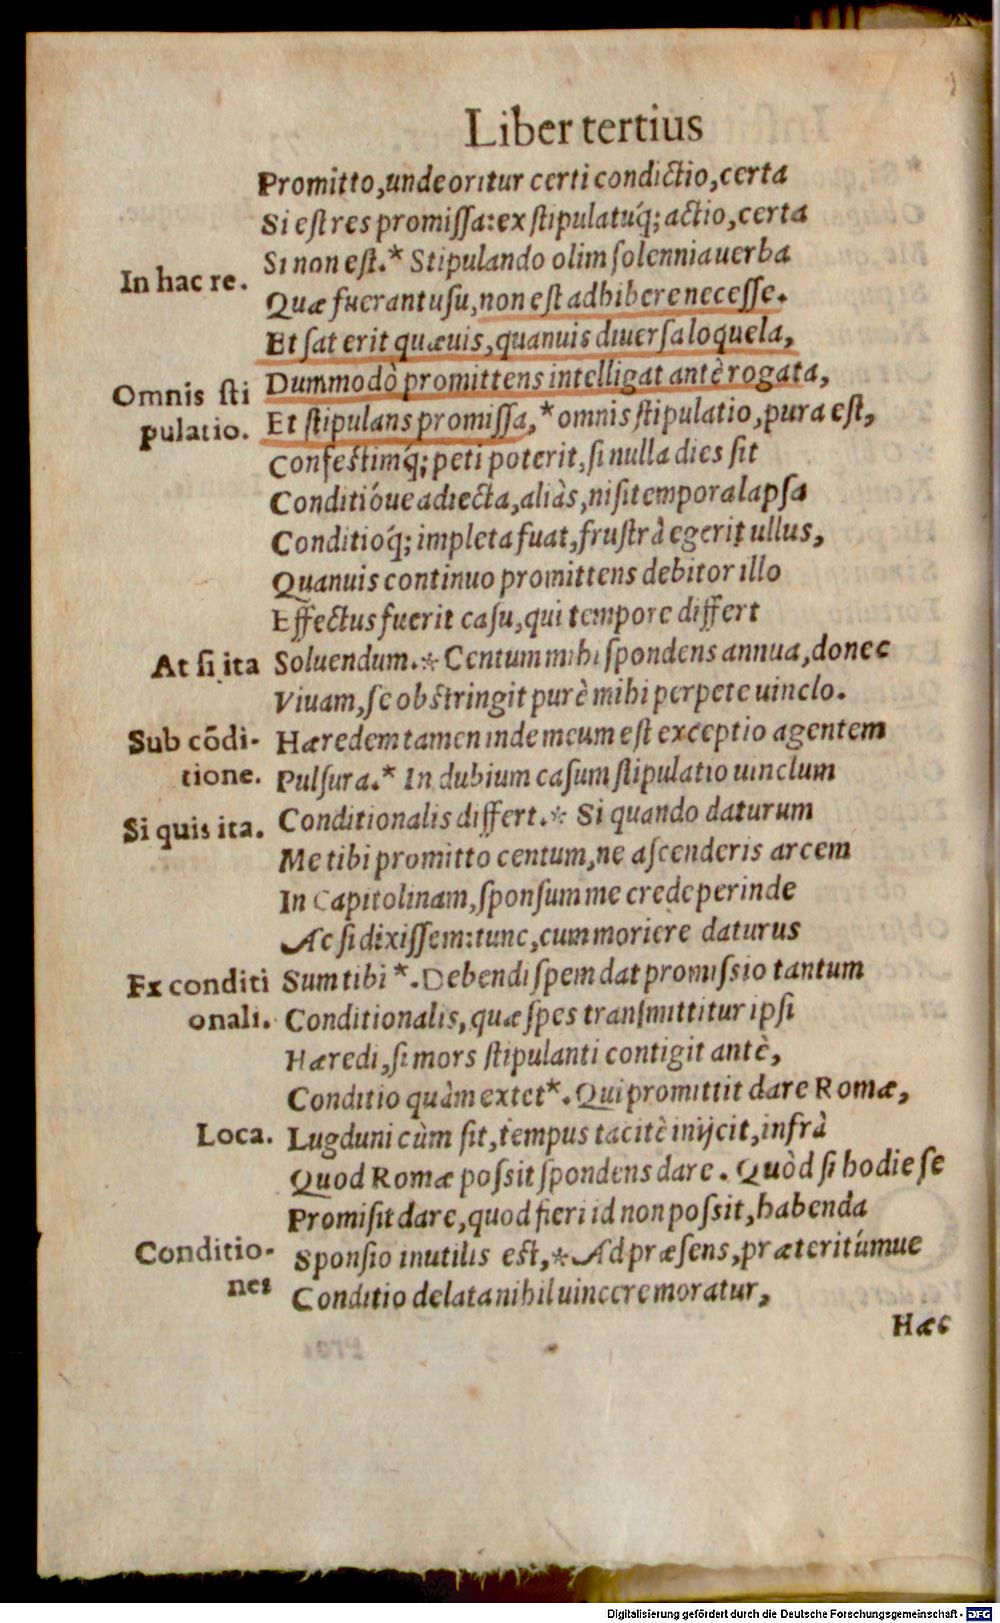 Liber tertius
Promitto, unde oritur certi condictio, certa
Si est res promissa: ex stipulatúq; actio, certa
In hac re.
Si non est.* Stipulando olim solennia uerba
Quæ fuerant usu, non est adhibere necesse.
Et sat erit quæuis, quanuis diuersa loquela,
Omnis sti
Dummodò promittens intelligat antè rogata,
pulatio.
Et stipulans promissa,* omnis stipulatio, pura est,
Confestimq́; peti poterit, si nulla dies sit
Conditióue adiecta, aliàs, nisi tempora lapsa
Conditioq́; impleta fuat, frustrà egerit ullus,
Quanuis continuo promittens debitor illo
Effectus fuerit casu, qui tempore differt
At si ita
Soluendum.* Centum mihi spondens annua, donec
Viuam, se obstringit purè mihi perpete uinclo.
Sub cōdi-
Hæredem tamen inde meum est exceptio agentem
tione.
Pulsura.* In dubium casum stipulatio uinclum
Si quis ita.
Conditionalis differt.* Si quando daturum
Me tibi promitto centum, ne ascenderis arcem
In Capitolinam, sponsum me crede perinde
Ac si dixissem: tunc, cum moriere daturus
Ex conditi
Sum tibi *. Debendi spem dat promissio tantum
onali.
Conditionalis, quæ spes transmittitur ipsi
Hæredi, si mors stipulanti contigit antè,
Conditio quàm extet*. Qui promittit dare Romæ,
Loca.
Lugduni cùm sit, tempus tacitè inijcit, infrà
Quod Romæ possit spondens dare. Quòd si hodie se
Promisit dare, quod fieri id non possit, habenda
Conditio-
Sponsio inutilis est,* Ad præsens, præteritúmue
nes
Conditio delata nihil uincere moratur,
Hæc
Digitalisierung gefördert durch die Deutsche Forschungsgemeinschaft - DFG